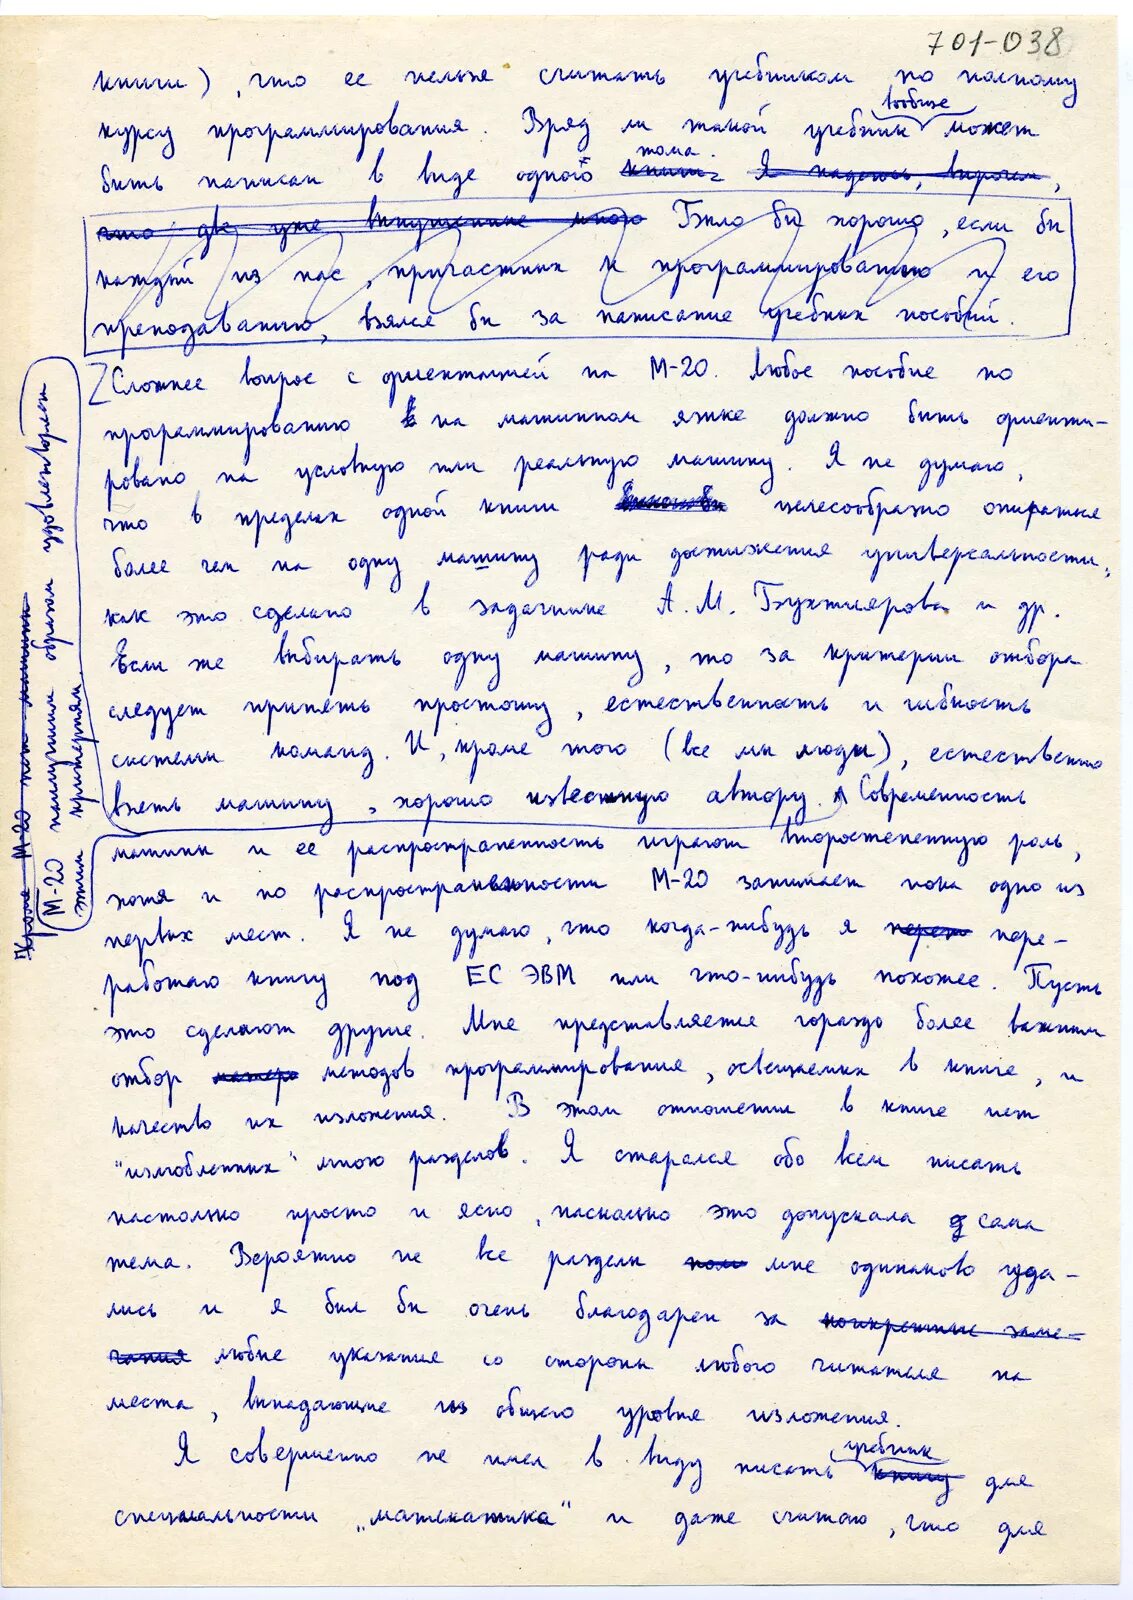 701-038
книги), что ее нельзя считать учебником по полному
вообще
курсу программирования. Вряд ли такой учебник может
тома.
быть написан в виде одного книги. Я надеюсь, впрочем,
что две уже выпущенные мною Было бы хорошо, если бы
каждый из нас, причастных к программированию и его
преподаванию, взялся бы за написание учебных пособий.
Сложнее вопрос с ориентацией на М-20. Любое пособие по
программированию на машинном языке должно быть ориенти-
ровано на условную или реальную машину. Я не думаю,
что в пределах одной книги целесообразно опираться
более чем на одну машину ради достижения универсальности,
как это сделано в задачнике А.М. Бухтиярова и др.
Если же выбирать одну машину, то за критерии отбора
следует принять простоту, естественность и гибкость
системы команд. И, кроме того (все мы люди), естественно
взять машину, хорошо известную автору. Современность
машины и ее распространенность играют второстепенную роль,
хотя и по распространенности М-20 занимает пока одно из
первых мест. Я не думаю, что когда-нибудь я переп пере-
работаю книгу под ЕС ЭВМ или что-нибудь похожее. Пусть
это сделают другие. Мне представляется гораздо более важным
отбор матери методов программирования, освещаемых в книге, и
качество их изложения. В этом отношении в книге нет
"излюбленных" мною разделов. Я старался обо всем писать
настолько просто и ясно, насколько это допускала сама
тема. Вероятно не все разделы мне одинаково уда-
лись и я был бы очень благодарен за конкретные заме-
чания любые указания со стороны любого читателя на
места, выпадающие из общего уровня изложения.
учебник
Я совершенно не имел в виду писать книгу для
специальности „математика" и даже считаю, что для
Кроме М-20 нет машины
М-20 наилучшим образом удовлетворяет
этим критериям.